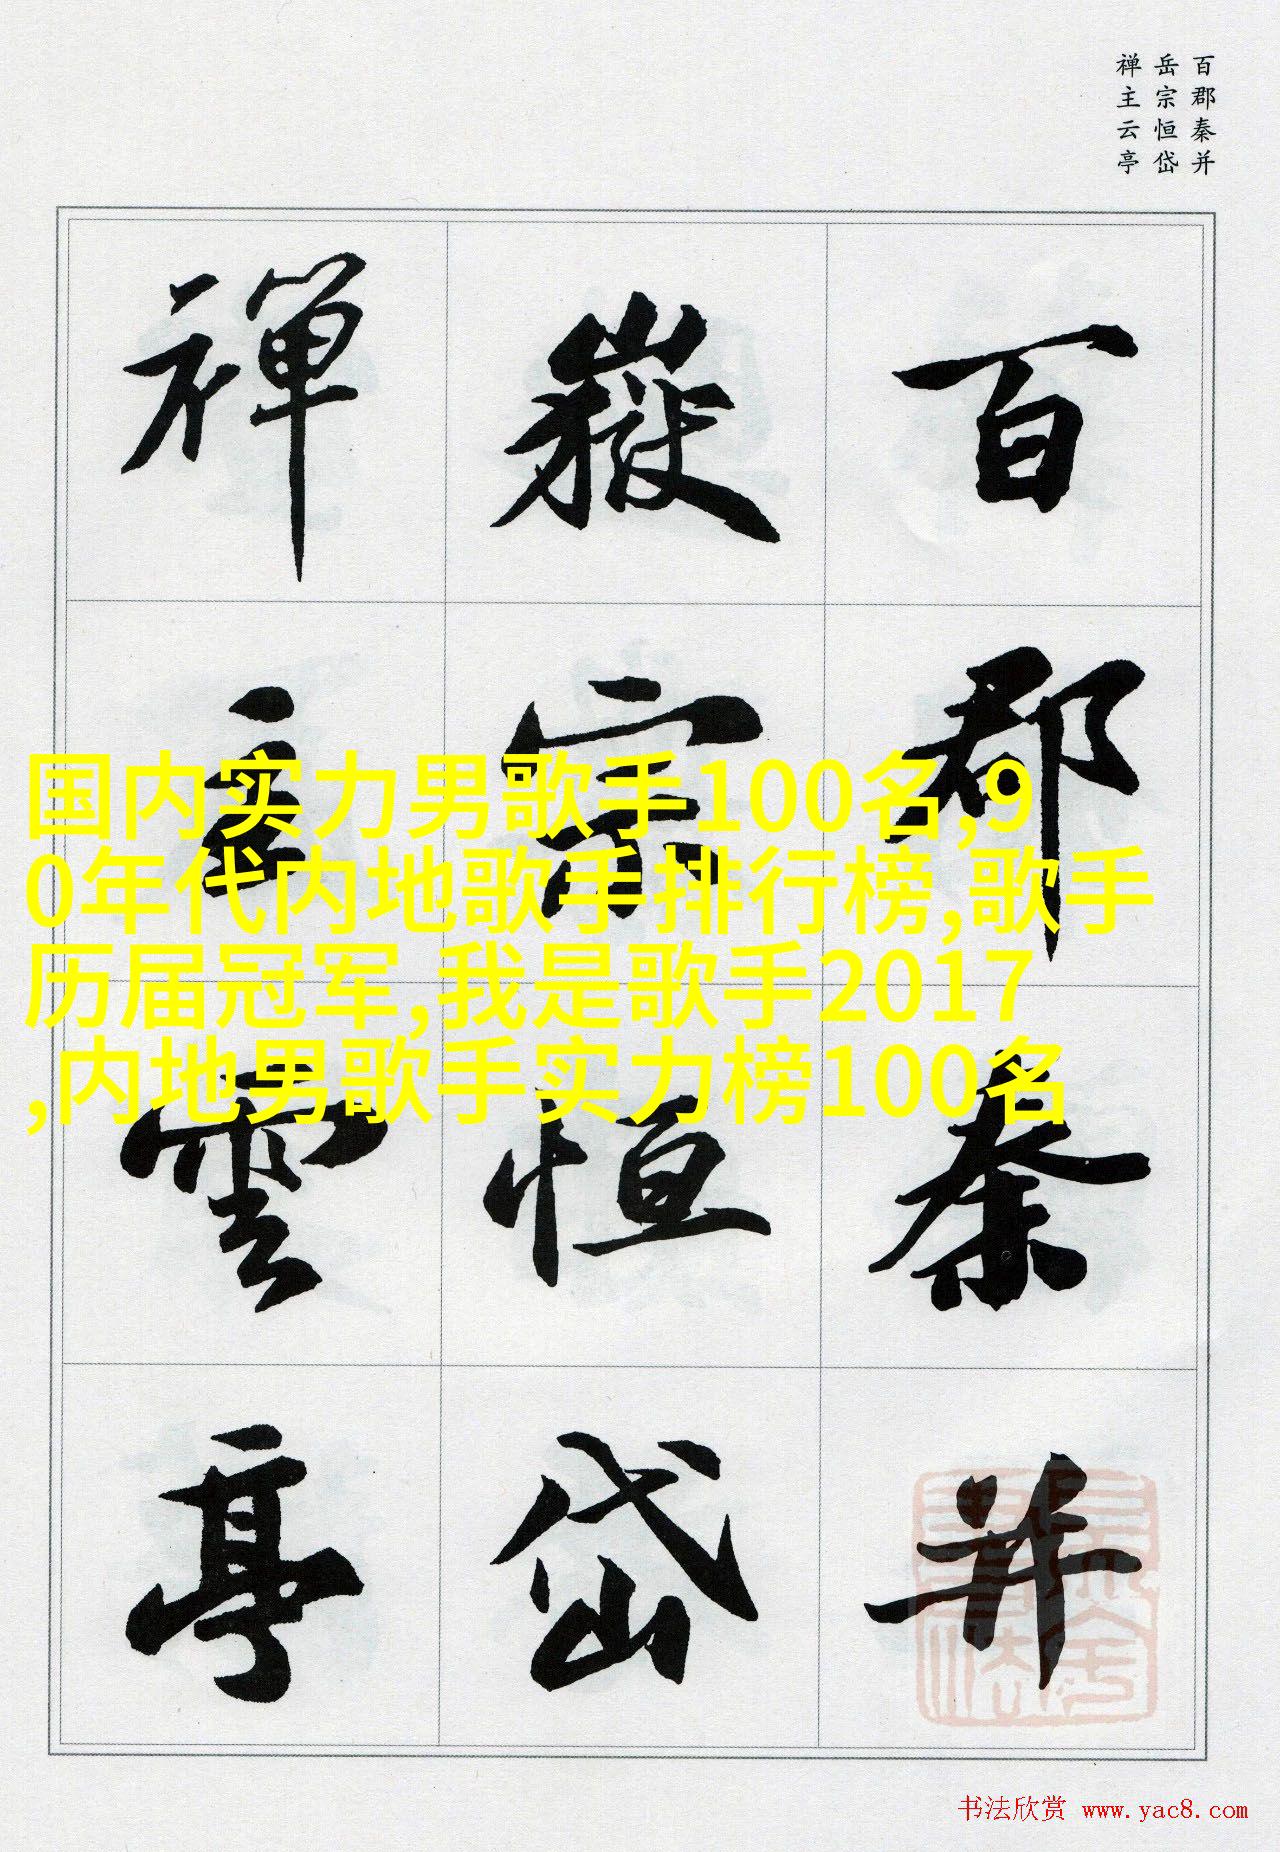 百郡秦并
岳宗恒岱
禅主云亭
百郡秦并
嶽宗恒岱
禅主雲亭
国内实力男歌手100名,9
0年代内地歌手排行榜,歌手
历届冠军,我是歌手2017
,内地男歌手实力榜100名
书法欣赏 www.yac8.com